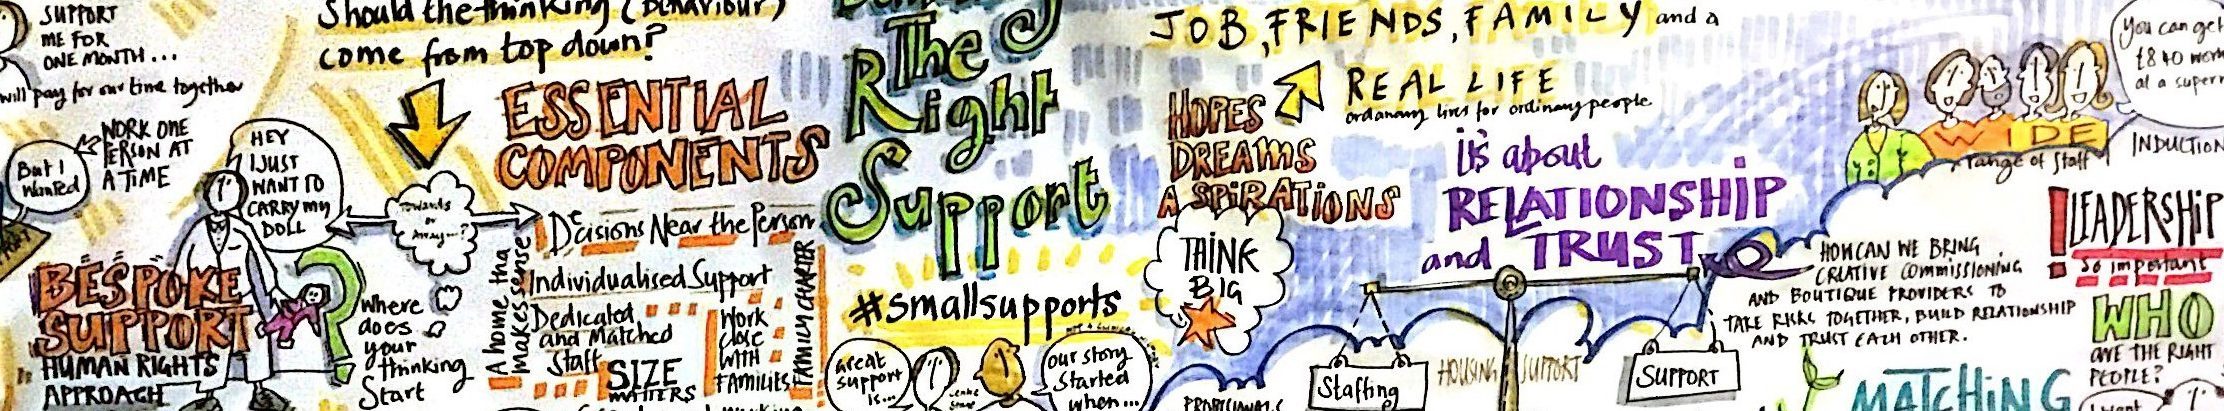 SUPPORT
ME FOR
ONE MONTH...
will pay for our time together
WORK ONE
PERSON AT
A TIME
But I
wanted
HEY
I JUST
WANT TO
CARRY MY
DOLL
BESPOKE
SUPPORT
HUMAN RIGHTS
APPROACH
Should the thinking (BEHAVIOUR)
come from top down?
Towards
or
Away...?
Where
does
your
thinking
Start
ESSENTIAL
COMPONENTS
Decisions Near the Person
Individualised Support
Dedicated
and Matched
Staff
SIZE
MATTERS
Work
close
WITH
FAMILIES
A home tha
makes sense
FAMILY CHARTER
The
Right
Support
#smallsupports
Great
support
is...
our story
started
when...
JOB, FRIENDS, FAMILY and a
REAL LIFE
ordanary lives for ordinary people.
HOPES
DREAMS
ASPIRATIONS
THINK
BIG
it's about
RELATIONSHIP
and TRUST
Staffing
HOUSING SUPPORT
SUPPORT
WIDE
range of Staff
You can get
at a super
INDUCTION
HOW CAN WE BRING
CREATIVE COMMISSIONING
AND BOUTIQUE PROVIDERS TO
TAKE RISKS TOGETHER, BUILD RELATIONSHIP
AND TRUST EACH OTHER.
!LEADERSHIP
so important
WHO
ARE THE RIGHT
PEOPLE?
MATCHING